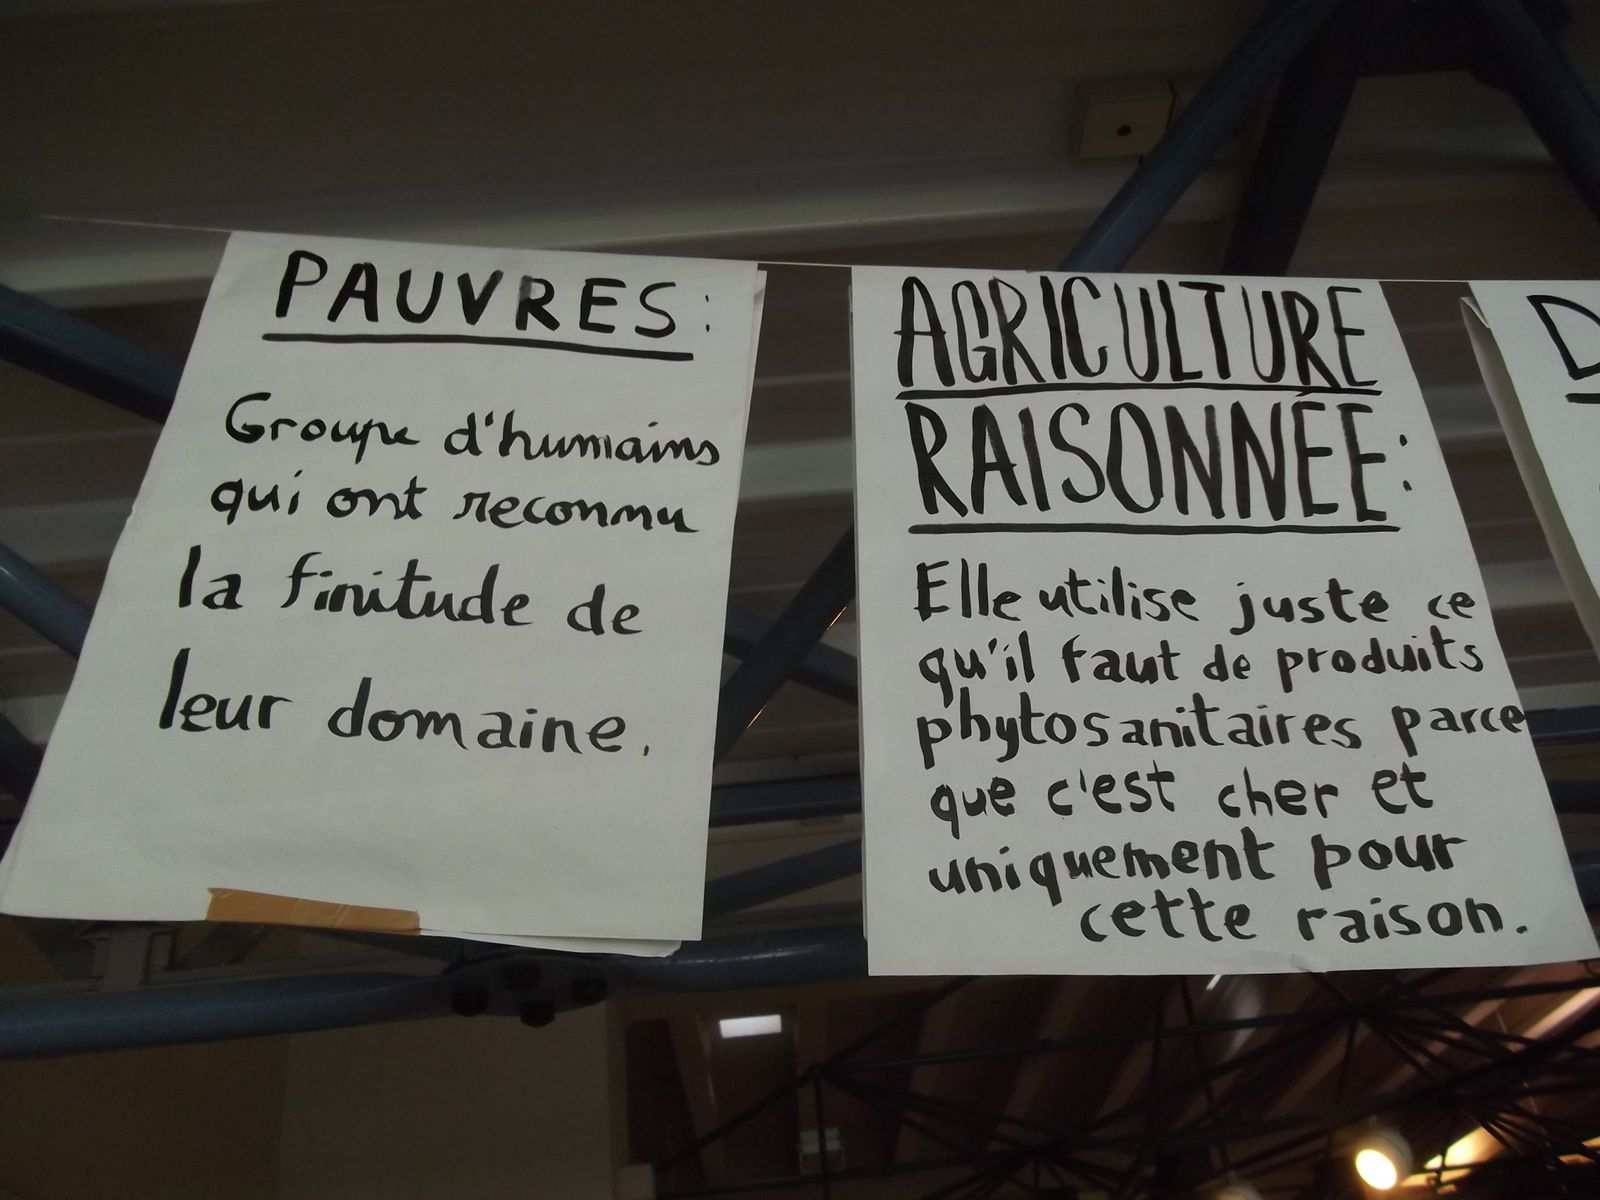 PAUVRES:
Groupe d'humains
qui ont reconnu
la finitude de
leur domaine.
AGRICULTURE
RAISONNÉE:
Elle utilise juste ce
qu'il faut de produits
phytosanitaires parce
que c'est cher et
uniquement pour
cette raison.
D